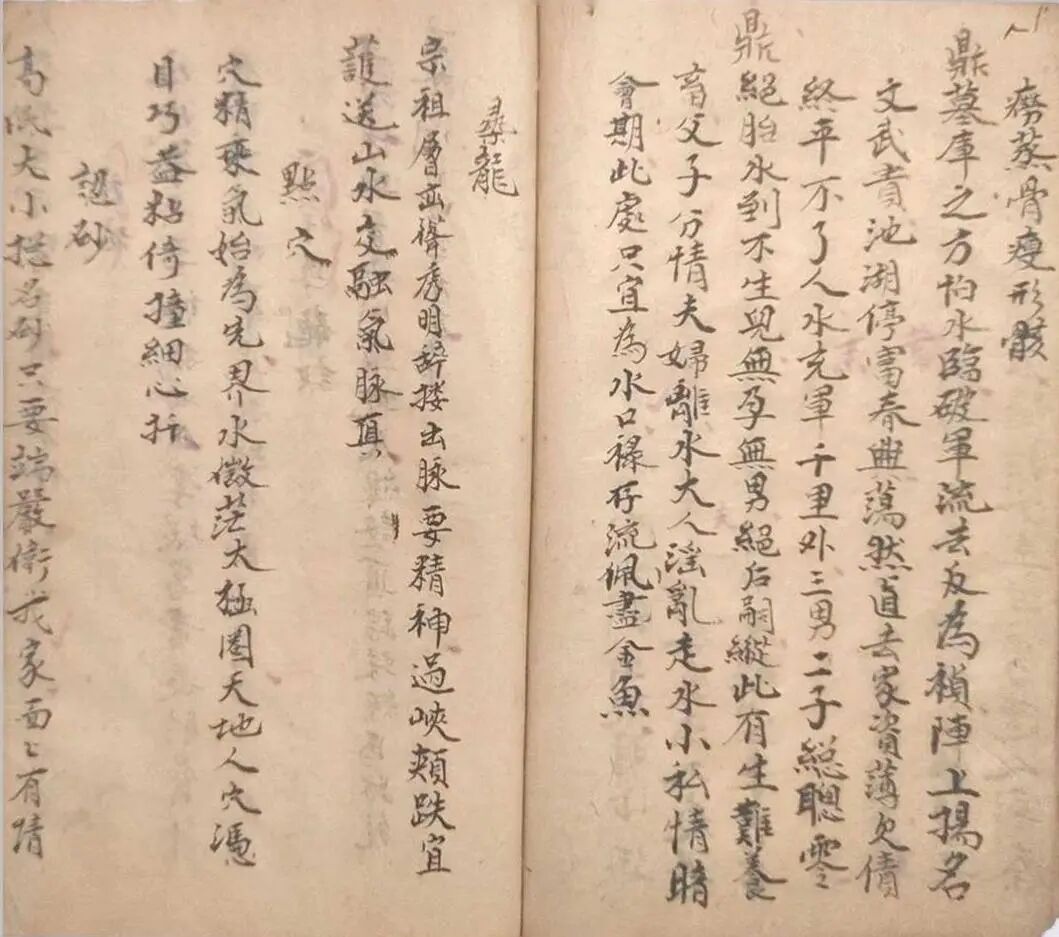 痨蒸骨瘦形骸
鼎墓庫之方怕水臨破軍流去反為禎陣上揚名
文武貴池湖停富春興蕩然直去家資薄欠債
終平不了人水充軍千里外三男二子総聰零
鼎絕胎水到不生兒無孕無男絕后嗣縱此有生難養
育父子分情夫婦離水大人淫亂走水小私情暗
會期此處只宜為水口祿存流佩盡金魚
尋龍
宗祖層巒聳秀明辭樓出脉要精神過峽頰跌宜
護送山水交融氣脉真
點穴
穴精乘氣始為先界水微茫太極圈天地人穴憑
目巧蓋粘倚撞細心扦
認砂
高低大小㧾名砂只要端嚴衛我家面々有情